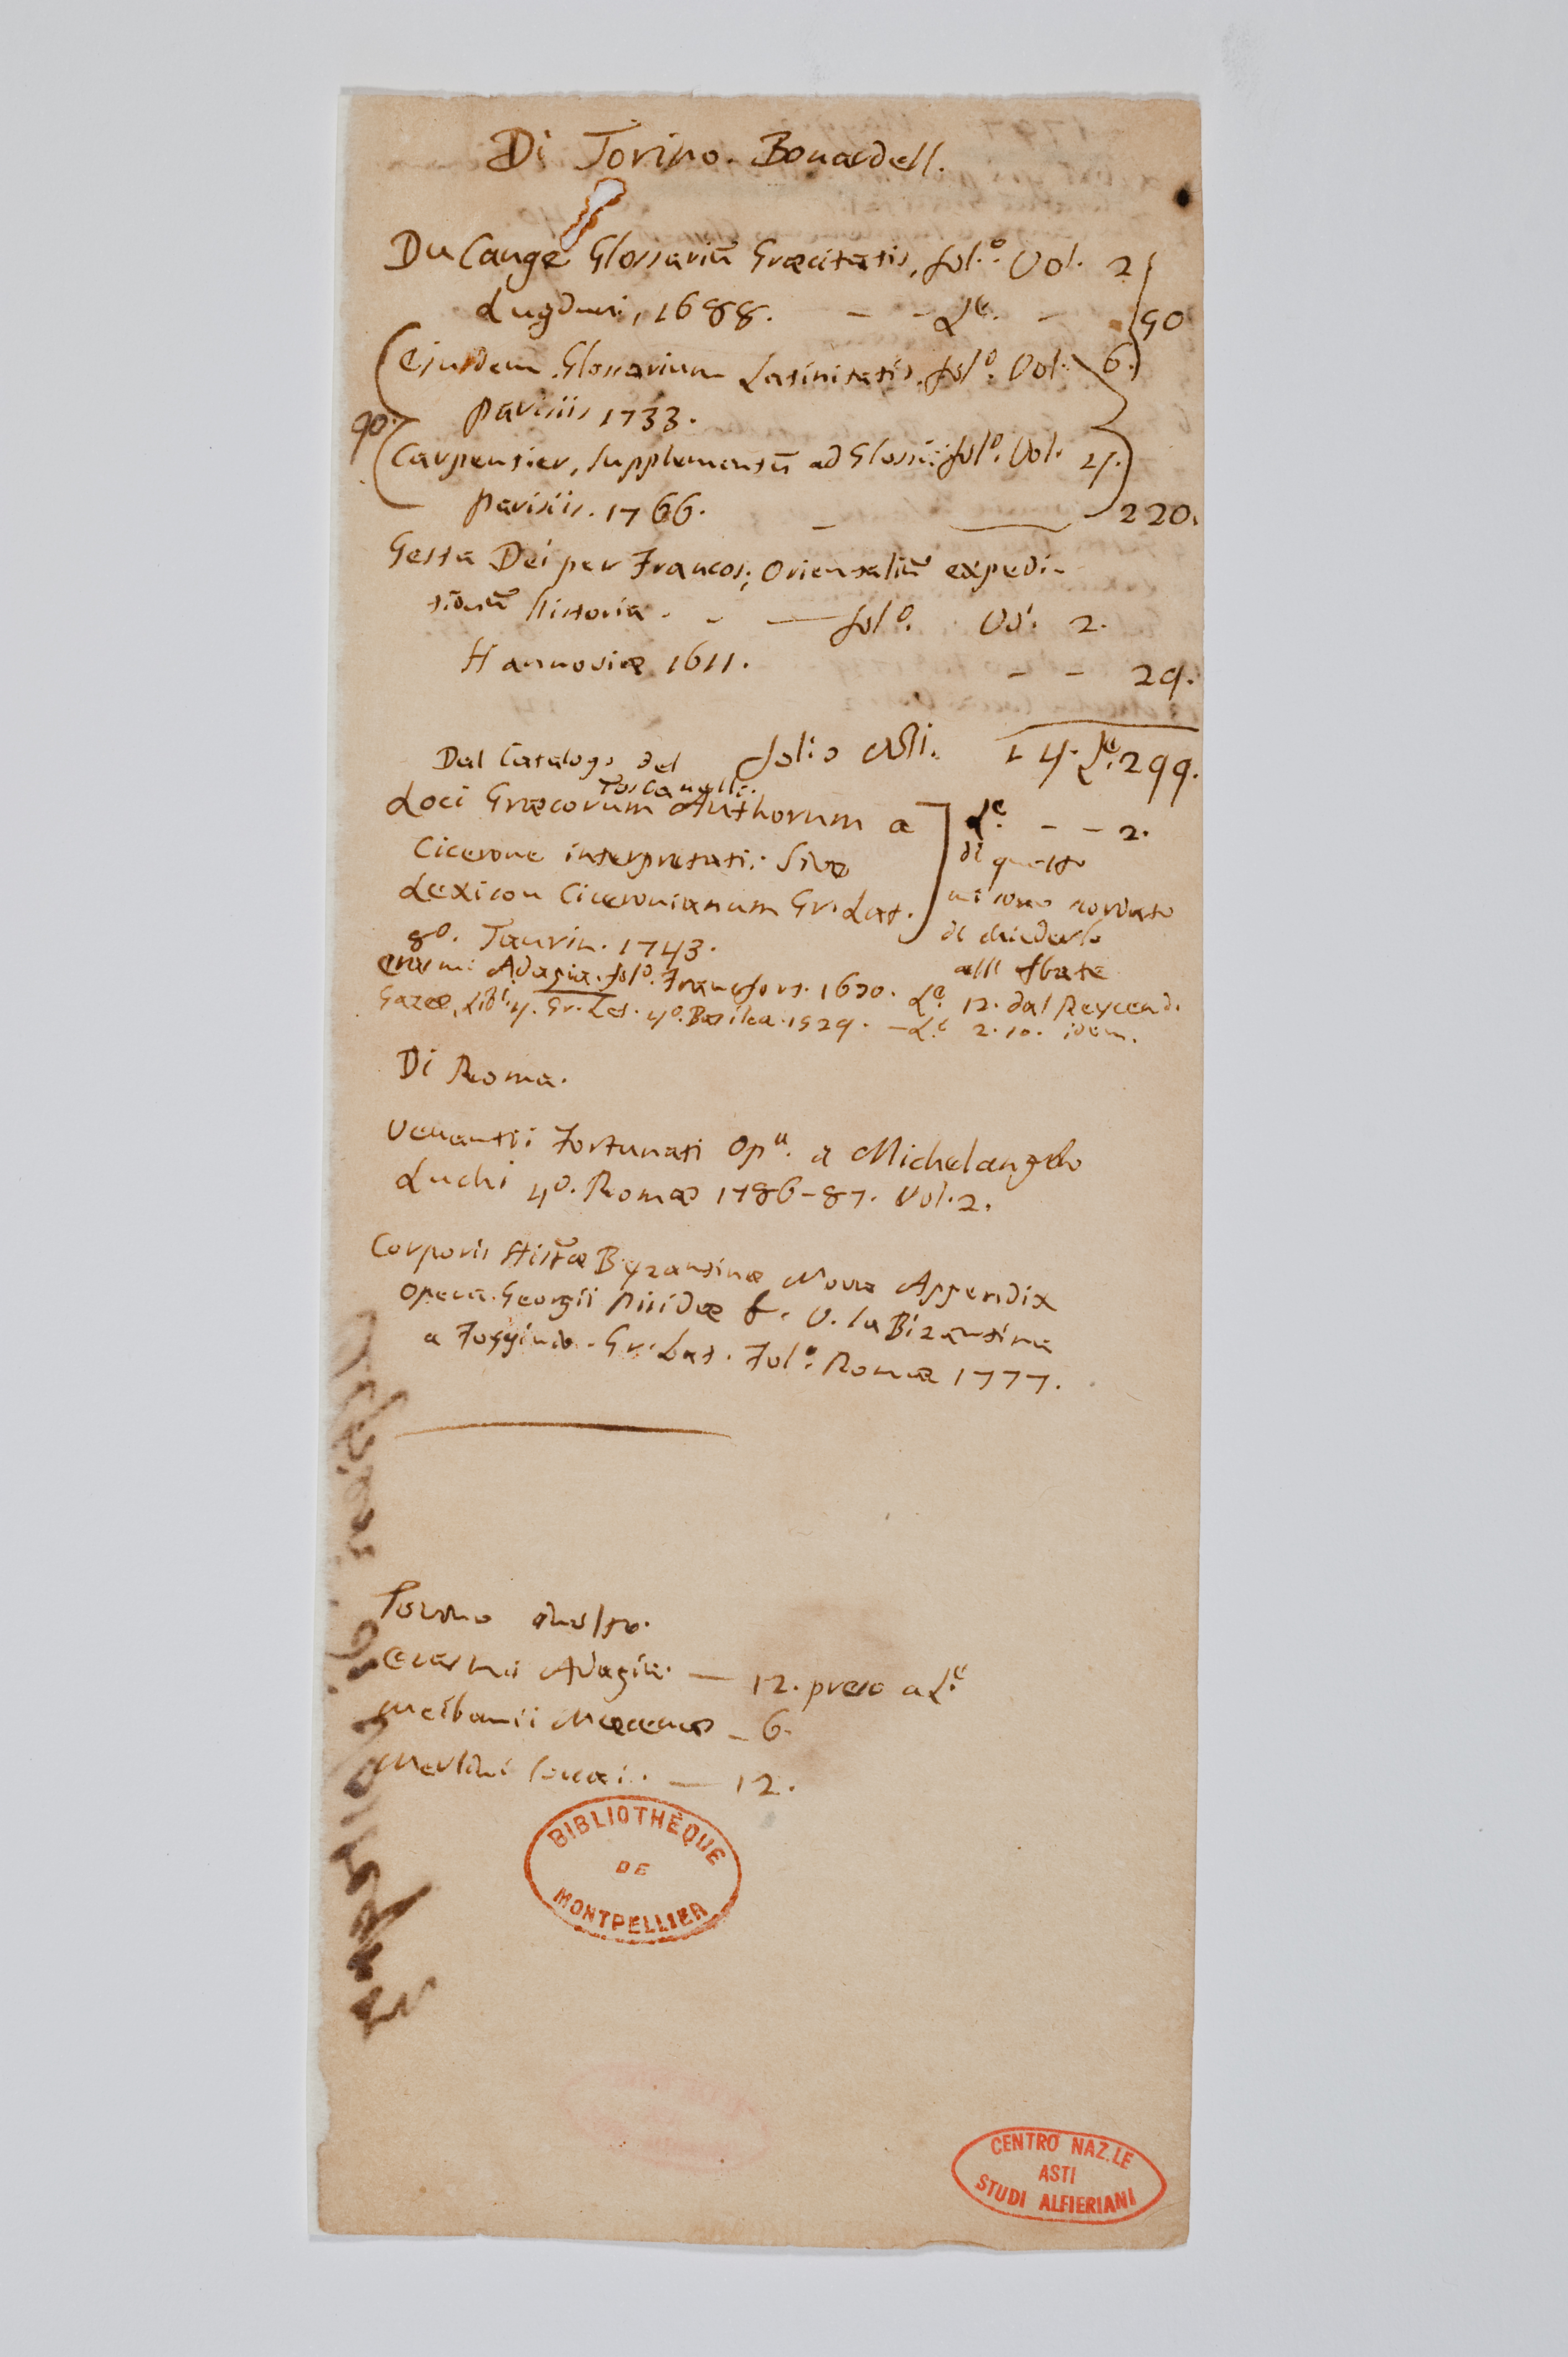 Di Torino. Bonardell.
Du Cange Glossariũ Græcitatis, folº. Vol. 2
Lugduni, 1688. - - Lᵉ. - 50
Ejusdem Glossarium Latinitatis, folº. Vol. 6.
Parisiis 1733.
90.
Carpentier, Supplementũ ad Gloss: folº. Vol. 4.
Parisiis. 1766. - 220.
Gesta Dei per Francos; Orientaliũ expedi-
tionũ historia. - folº. Vol. 2.
Hannoviæ 1611. - - 29.
folii Lᵉ. 299.
Dal Catalogo del
Toscanelli.
Loci Græcorum Authorum a
Cicerone interpretati: Sive
Lexicon Ciceronianum Gr. Lat.
8º. Taurin. 1743.
Lᵉ. - - 2.
di questo
mi sono scordato
di chiederlo
all' Abate
Erasmi Adagia. folº. Francfort. 1670. Lᵉ. 12. dal Reycend.
Gazæ, Libⁱ. 4. Gr. Lat. 4º. Basilea. 1529. - Lᵉ 2.10. idem.
Di Roma.
Venantii Fortunati Opᵃ. a Michelangelo
Luchi 4º. Romæ 1786-87. Vol. 2.
Corporis Histæ Byzantinæ Nova Appendix
Opera Georgii Pisidæ &. V. la Bizantina
a Fogginio. Gr. Lat. Folº. Romæ 1777.
Torino
Erasmi Adagia. — 12. preso a Lᵉ
Meibomii Mæcenas - 6.
Merlini Cocai. — 12.
BIBLIOTHÈQUE
DE
MONTPELLIER
CENTRO NAZ.LE
ASTI
STUDI ALFIERIANI